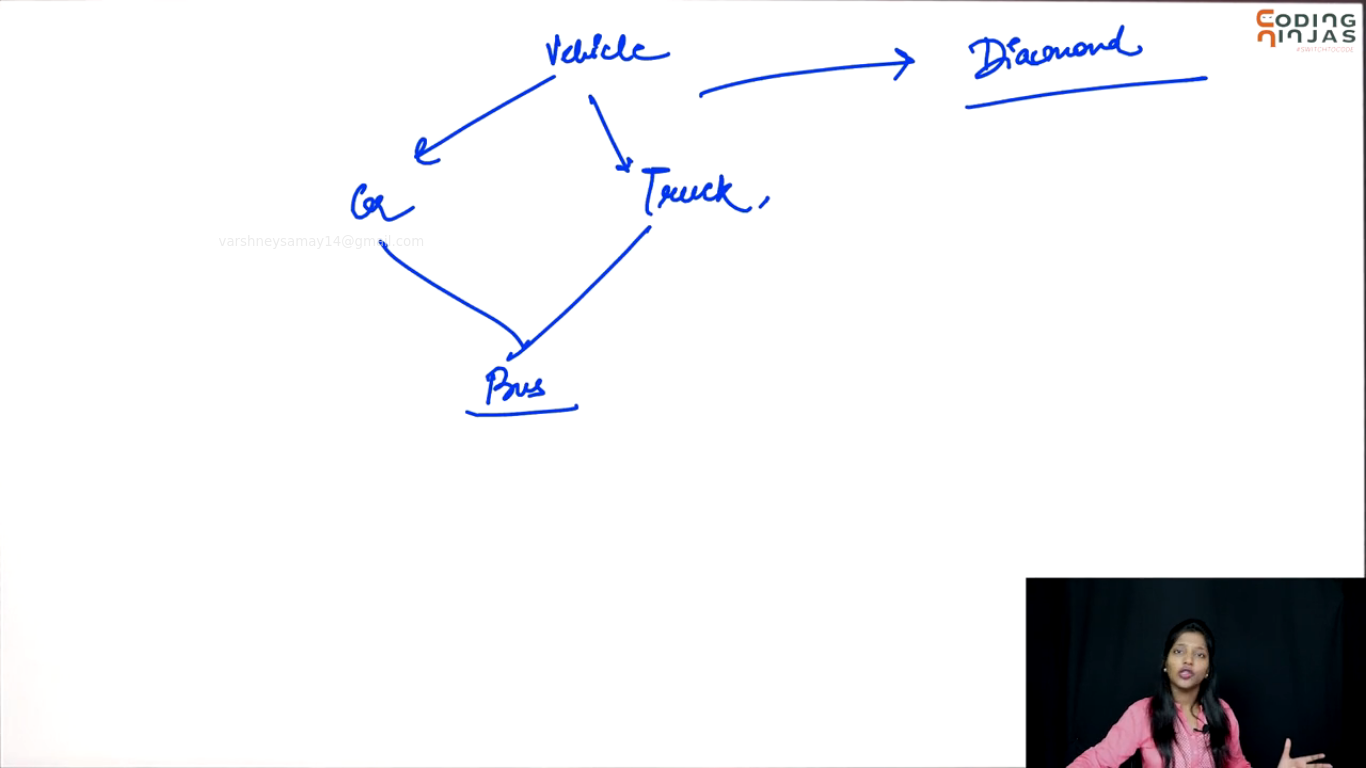 CODING
NINJAS
#SWITCHTOCODE
Vehicle
Diamond
Car
Truck,
varshneysamay14@gmail.com
Bus